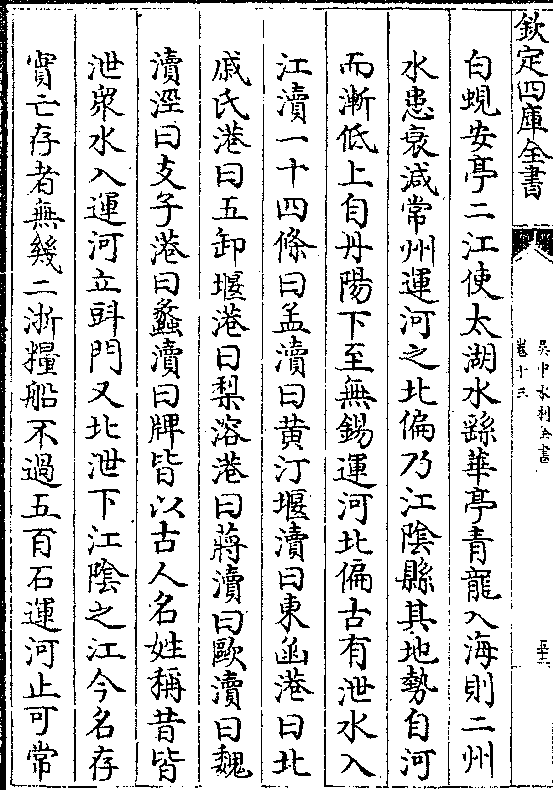 欽定四庫全書
吳中水利全書
卷十三
白蜆安亭二江使太湖水繇華亭青龍入海則二州
水患衰減常州運河之北偏乃江陰縣其地勢自河
而漸低上自丹陽下至無錫運河北偏古有泄水入
江瀆一十四條曰孟瀆曰黃汀堰瀆曰東凾港曰北
戚氏港曰五卸堰港曰梨溶港曰蔣瀆曰歐瀆曰魏
瀆涇曰支子港曰蠡瀆曰牌皆以古人名姓稱昔皆
泄衆水入運河立㪷門又北泄下江陰之江今名存
實亡存者無幾二浙糧船不過五百石運河止可常